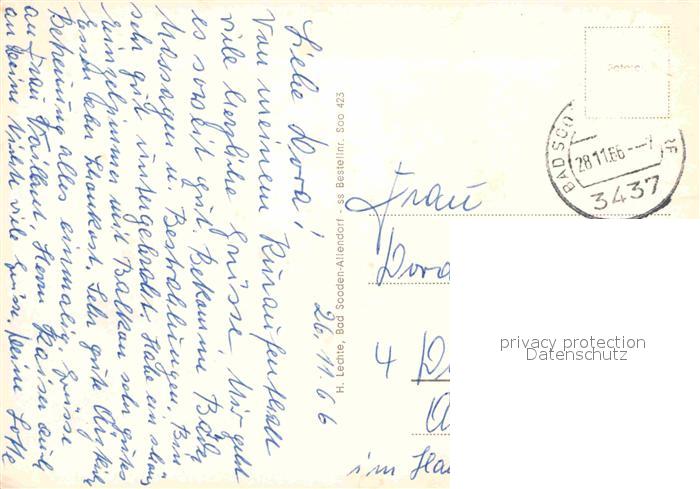 26.11.66
Liebe Dora!
Von meinem Kuraufenthalt
viele herzliche Grüsse. Mir geht
es soweit gut. Bekomme Bäder
Massagen u. Bestrahlungen. Bin
sehr gut untergebracht. Habe ein schönes
Einzelzimmer mit Balkon sehr gutes
Essen, aber Schonkost. Sehr gute ärztliche
Betreuung alles einmalig. Grüsse
an Frau Vaillant, Herrn Kaiser auch
an Deine Nichte viele Grüsse. Deine Lotte
H. Lechte, Bad Sooden-Allendorf - ss Bestellnr. Soo 423
BAD SOO
28.11.66--7
3437
Frau
Dora
4
im Ha
privacy protection
Datenschutz